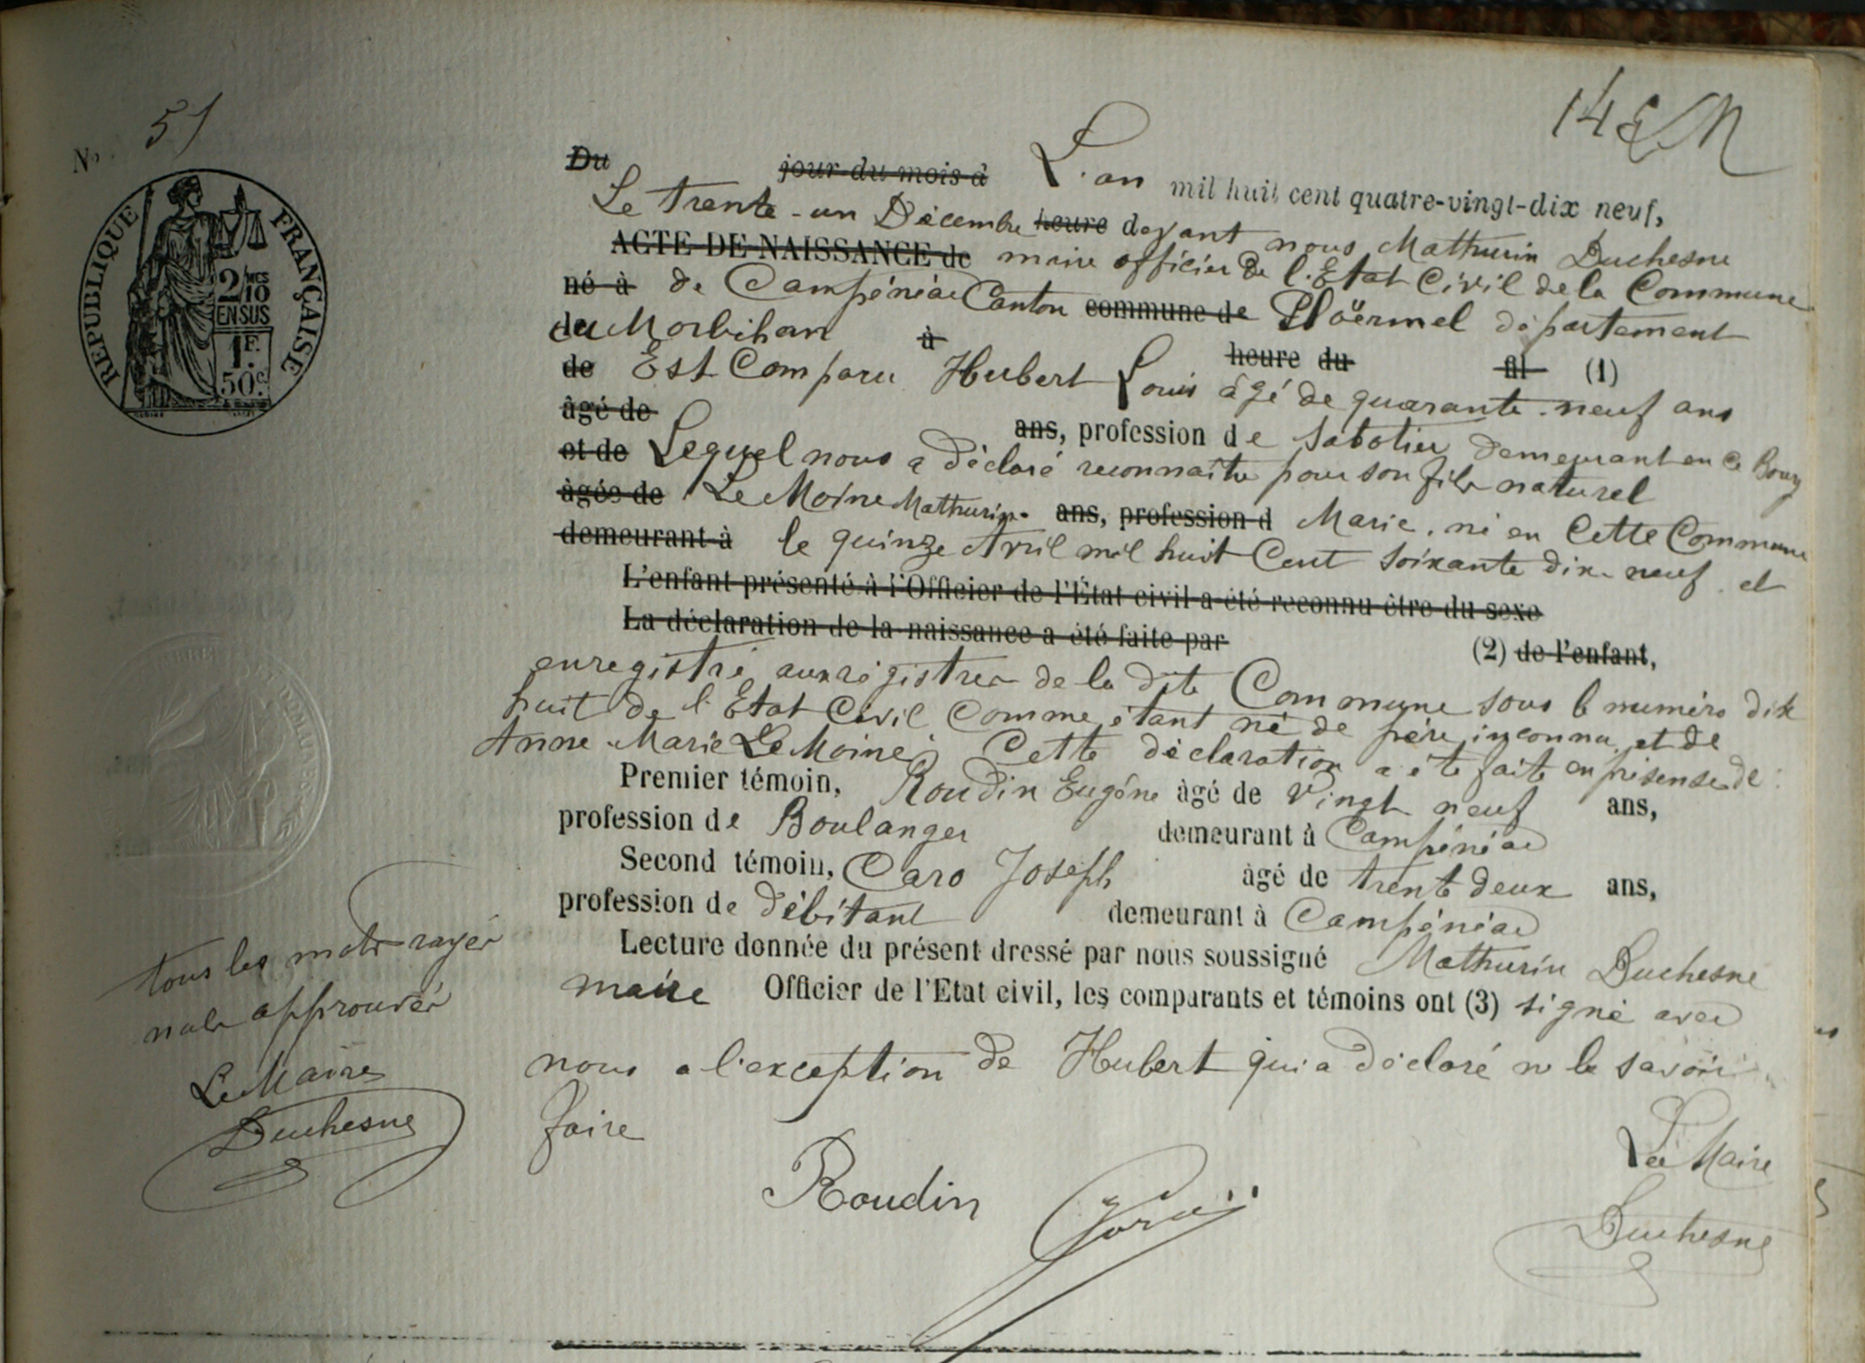 14e M
No 51
RÉPUBLIQUE FRANÇAISE
2/10 MES
EN SUS
1 F.
50 c.
Du jour du mois d L'an mil huit cent quatre-vingt-dix neuf,
Le trente-un Décembre heure devant nous Mathurin Duchesne
ACTE DE NAISSANCE de maire officier de l'Etat Civil de la Commune
né à de Campénéac Canton commune de Ploërmel département
du Morbihan à heure du fil (1)
de Est Comparu Hubert Louis âgé de quarante-neuf ans
âgé de ans, profession de Sabotier demeurant en ce Bourg
et de Lequel nous a déclaré reconnaitre pour son fils naturel
âgée de Le Moine Mathurin ans, profession d Marie, né en Cette Commune
demeurant à le quinze Avril mil huit Cent soixante dix-neuf et
L'enfant présenté à l'Officier de l'État civil a été reconnu être du sexe
La déclaration de la naissance a été faite par (2) de l'enfant,
enregistré aux régistres de la dite Commune sous le numéro dix
huit de l'Etat Civil Comme étant né de père inconnu et de
Anne Marie Le Moine. Cette déclaration a été faite en présense de :
Premier témoin, Roudin Eugène âgé de Vingt neuf ans,
profession de Boulanger demeurant à Campénéac
Second témoin, Caro Joseph âgé de trente deux ans,
profession de débitant demeurant à Campénéac
Lecture donnée du présent dressé par nous soussigné Mathurin Duchesne
maire Officier de l'Etat civil, les comparants et témoins ont (3) signé avec
nous a l'exception de Hubert qui a déclaré ne le savoir
faire
tous les mots rayés
nuls approuvés
Le Maire
Duchesne
Roudin
Le Maire
Duchesne